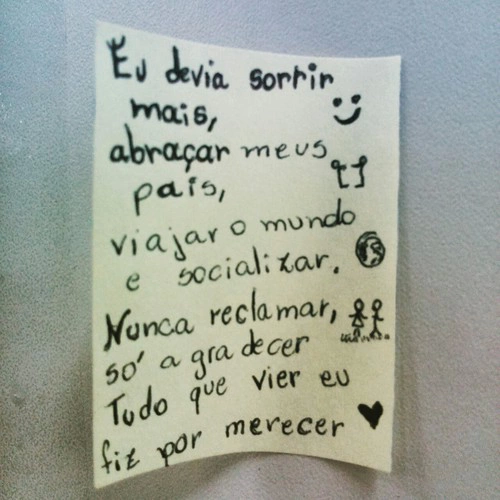 Eu devia sorrir
mais,
abraçar meus
pais,
viajar o mundo
e socializar.
Nunca reclamar,
so' agradecer
Tudo que vier eu
fiz por merecer